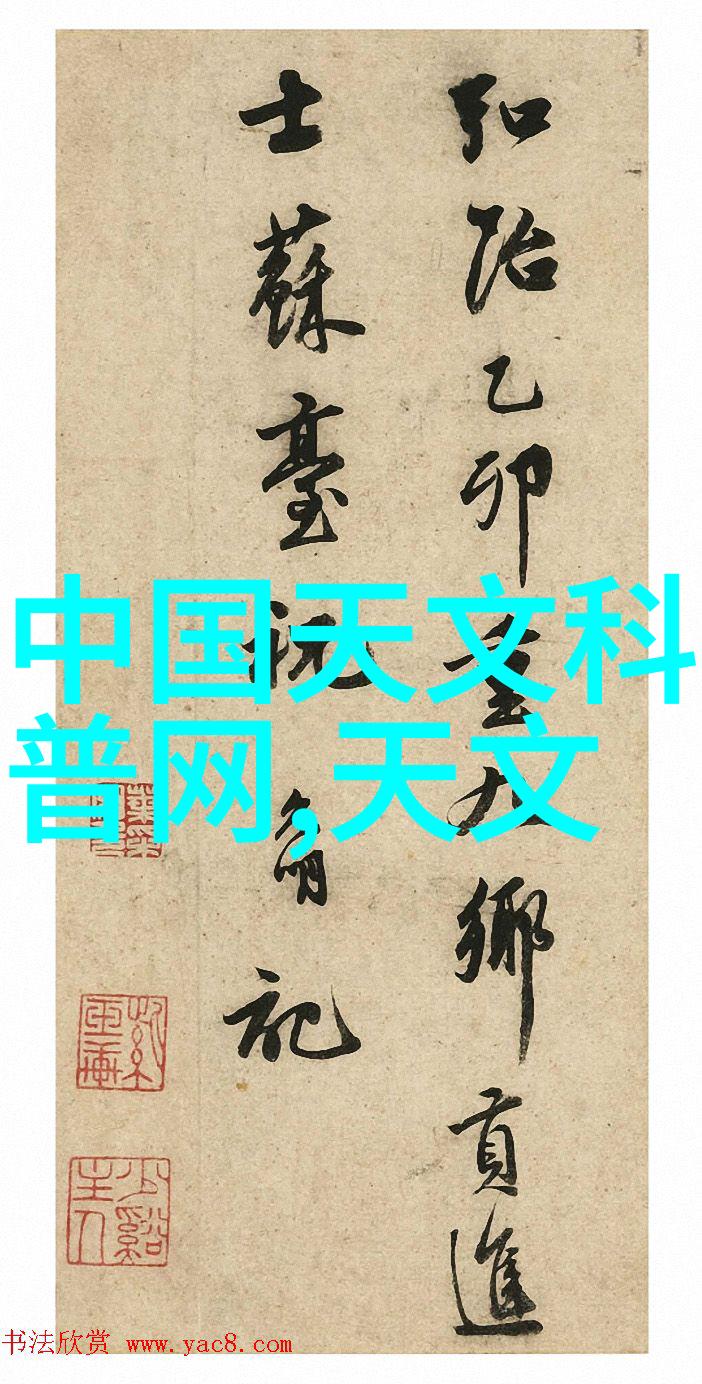 弘治乙卯重九鄉貢進
士蘇臺祝允明記
中国天文科
普网,天文
少谿主人
书法欣赏 www.yac8.com